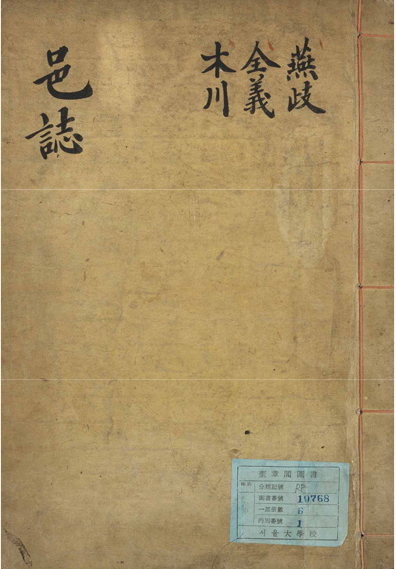 燕歧
全義
木川
邑誌
奎章閣圖書
分類記號
圖書番號 10768
一部冊數 6
內別番號 1
서울大學校